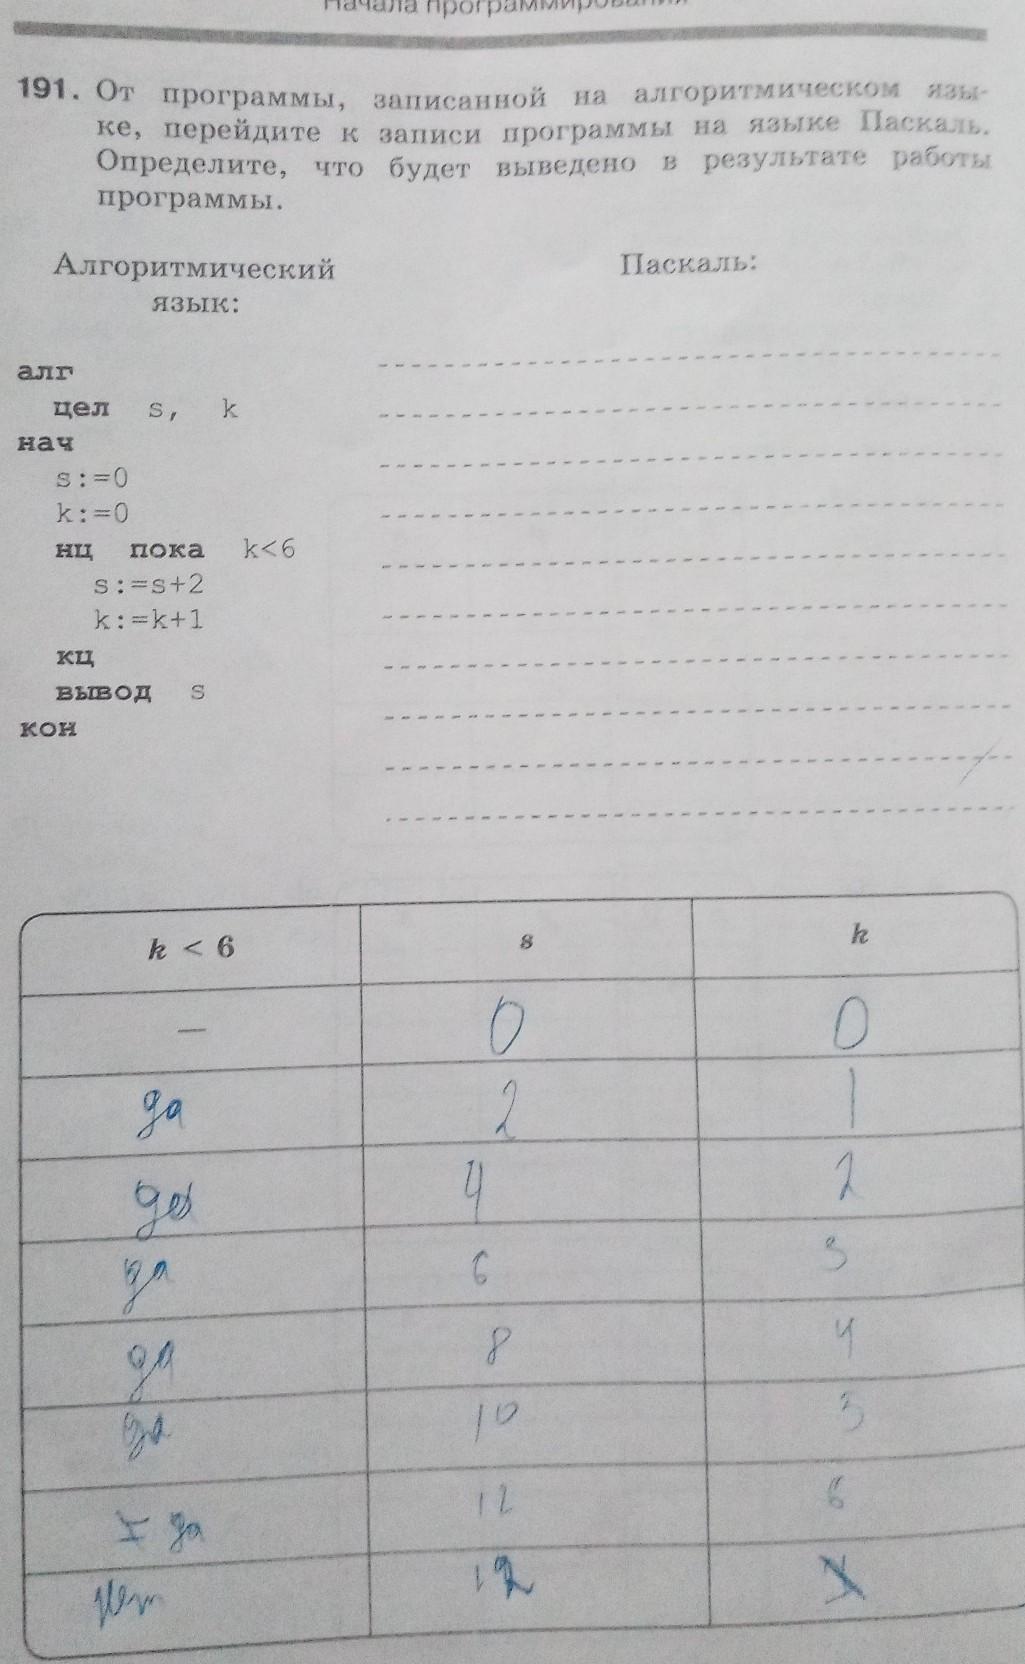 Начала программирования
191. От программы, записанной на алгоритмическом язы-
ке, перейдите к записи программы на языке Паскаль.
Определите, что будет выведено в результате работы
программы.
Алгоритмический
язык:
Паскаль:
алг
цел s, k
нач
s:=0
k:=0
нц пока k<6
s:=s+2
k:=k+1
кц
вывод s
кон
k < 6 s k
— 0 0
да 2 1
да 4 2
да 6 3
да 8 4
да 10 3
да 12 6
нет 12